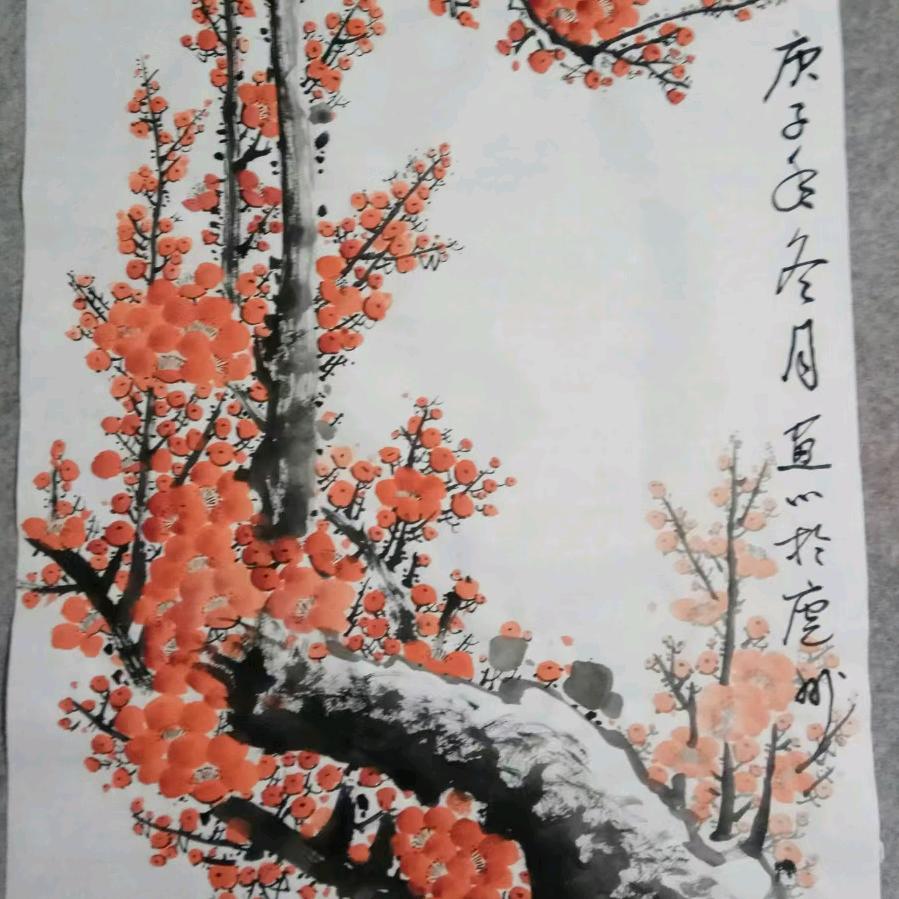 庚子年冬月直心於虔州